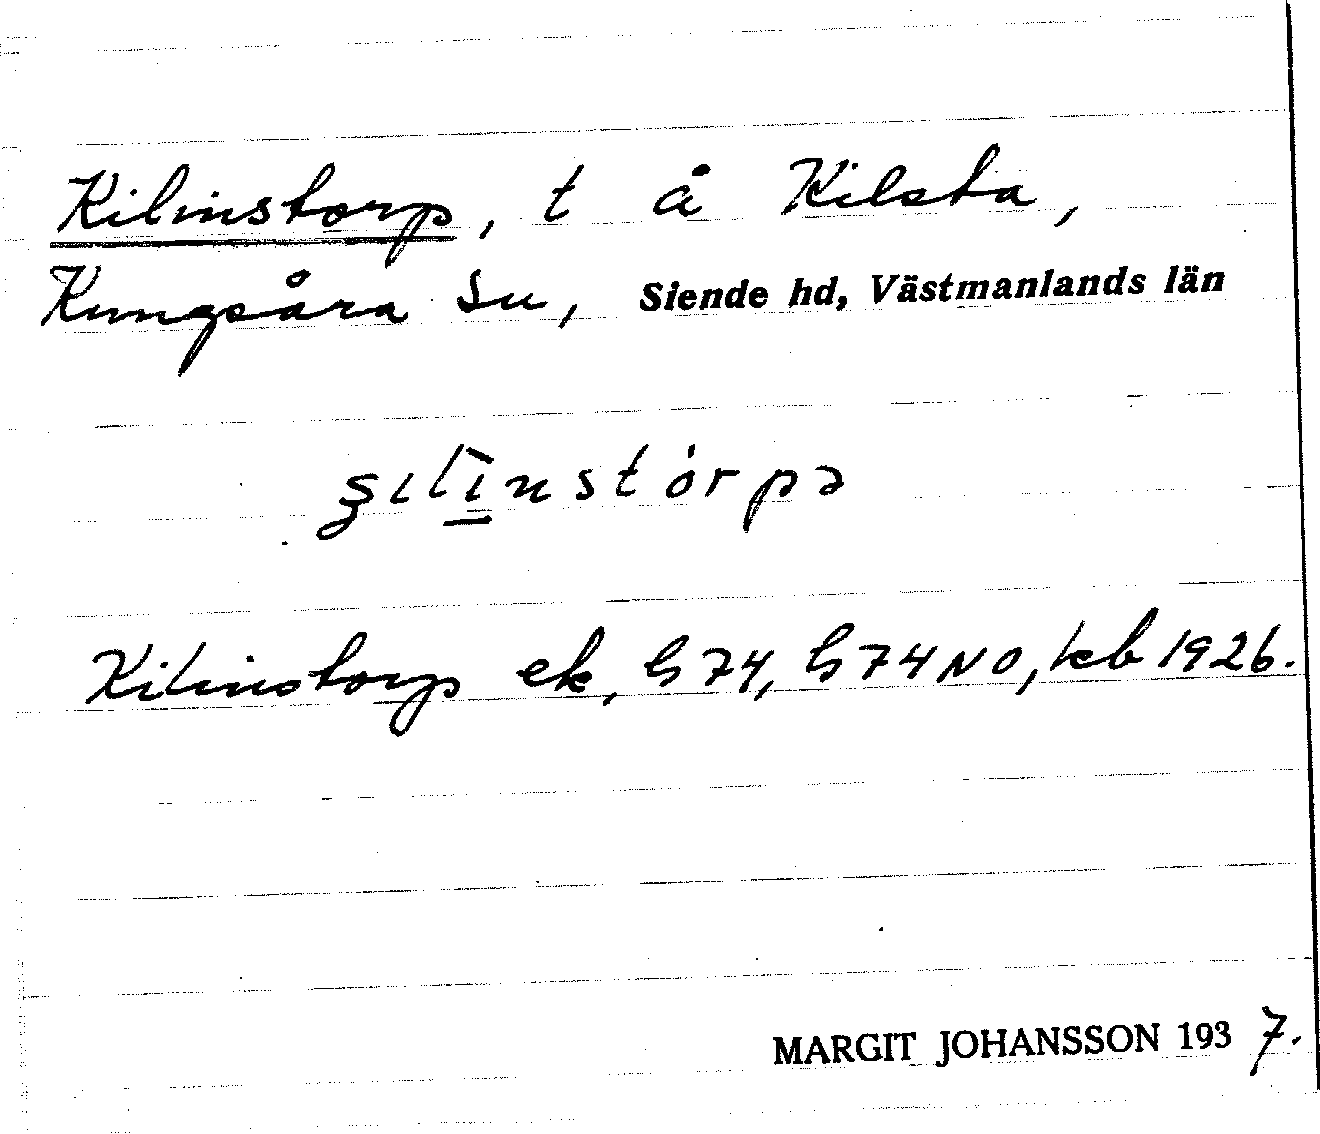 Kilinstorp, t å Kilsta,
Kungsåra sn, Siende hd, Västmanlands län
Kilinstorp ek, h 74, h 74 NO, kb 1926.
MARGIT JOHANSSON 1937.